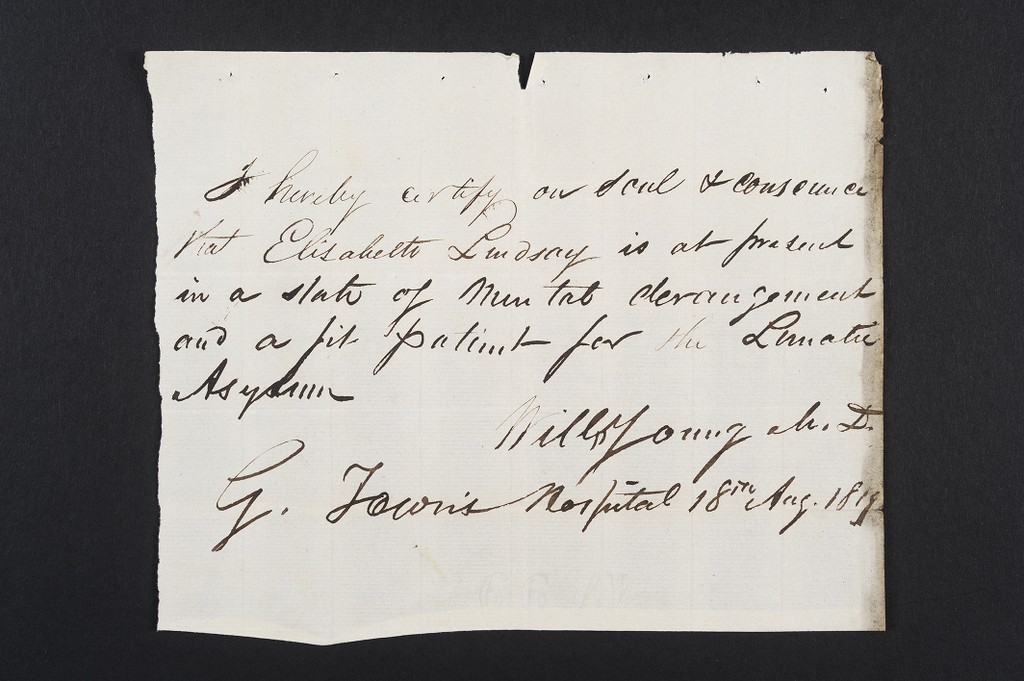 I hereby certify on Soul & conscience
that Elisabeth Lindsay is at present
in a state of Mental derangement
and a fit patient for the Lunatic
Asylum
Will Young M.D.
G. Town's Hospital 18th Aug. 1819